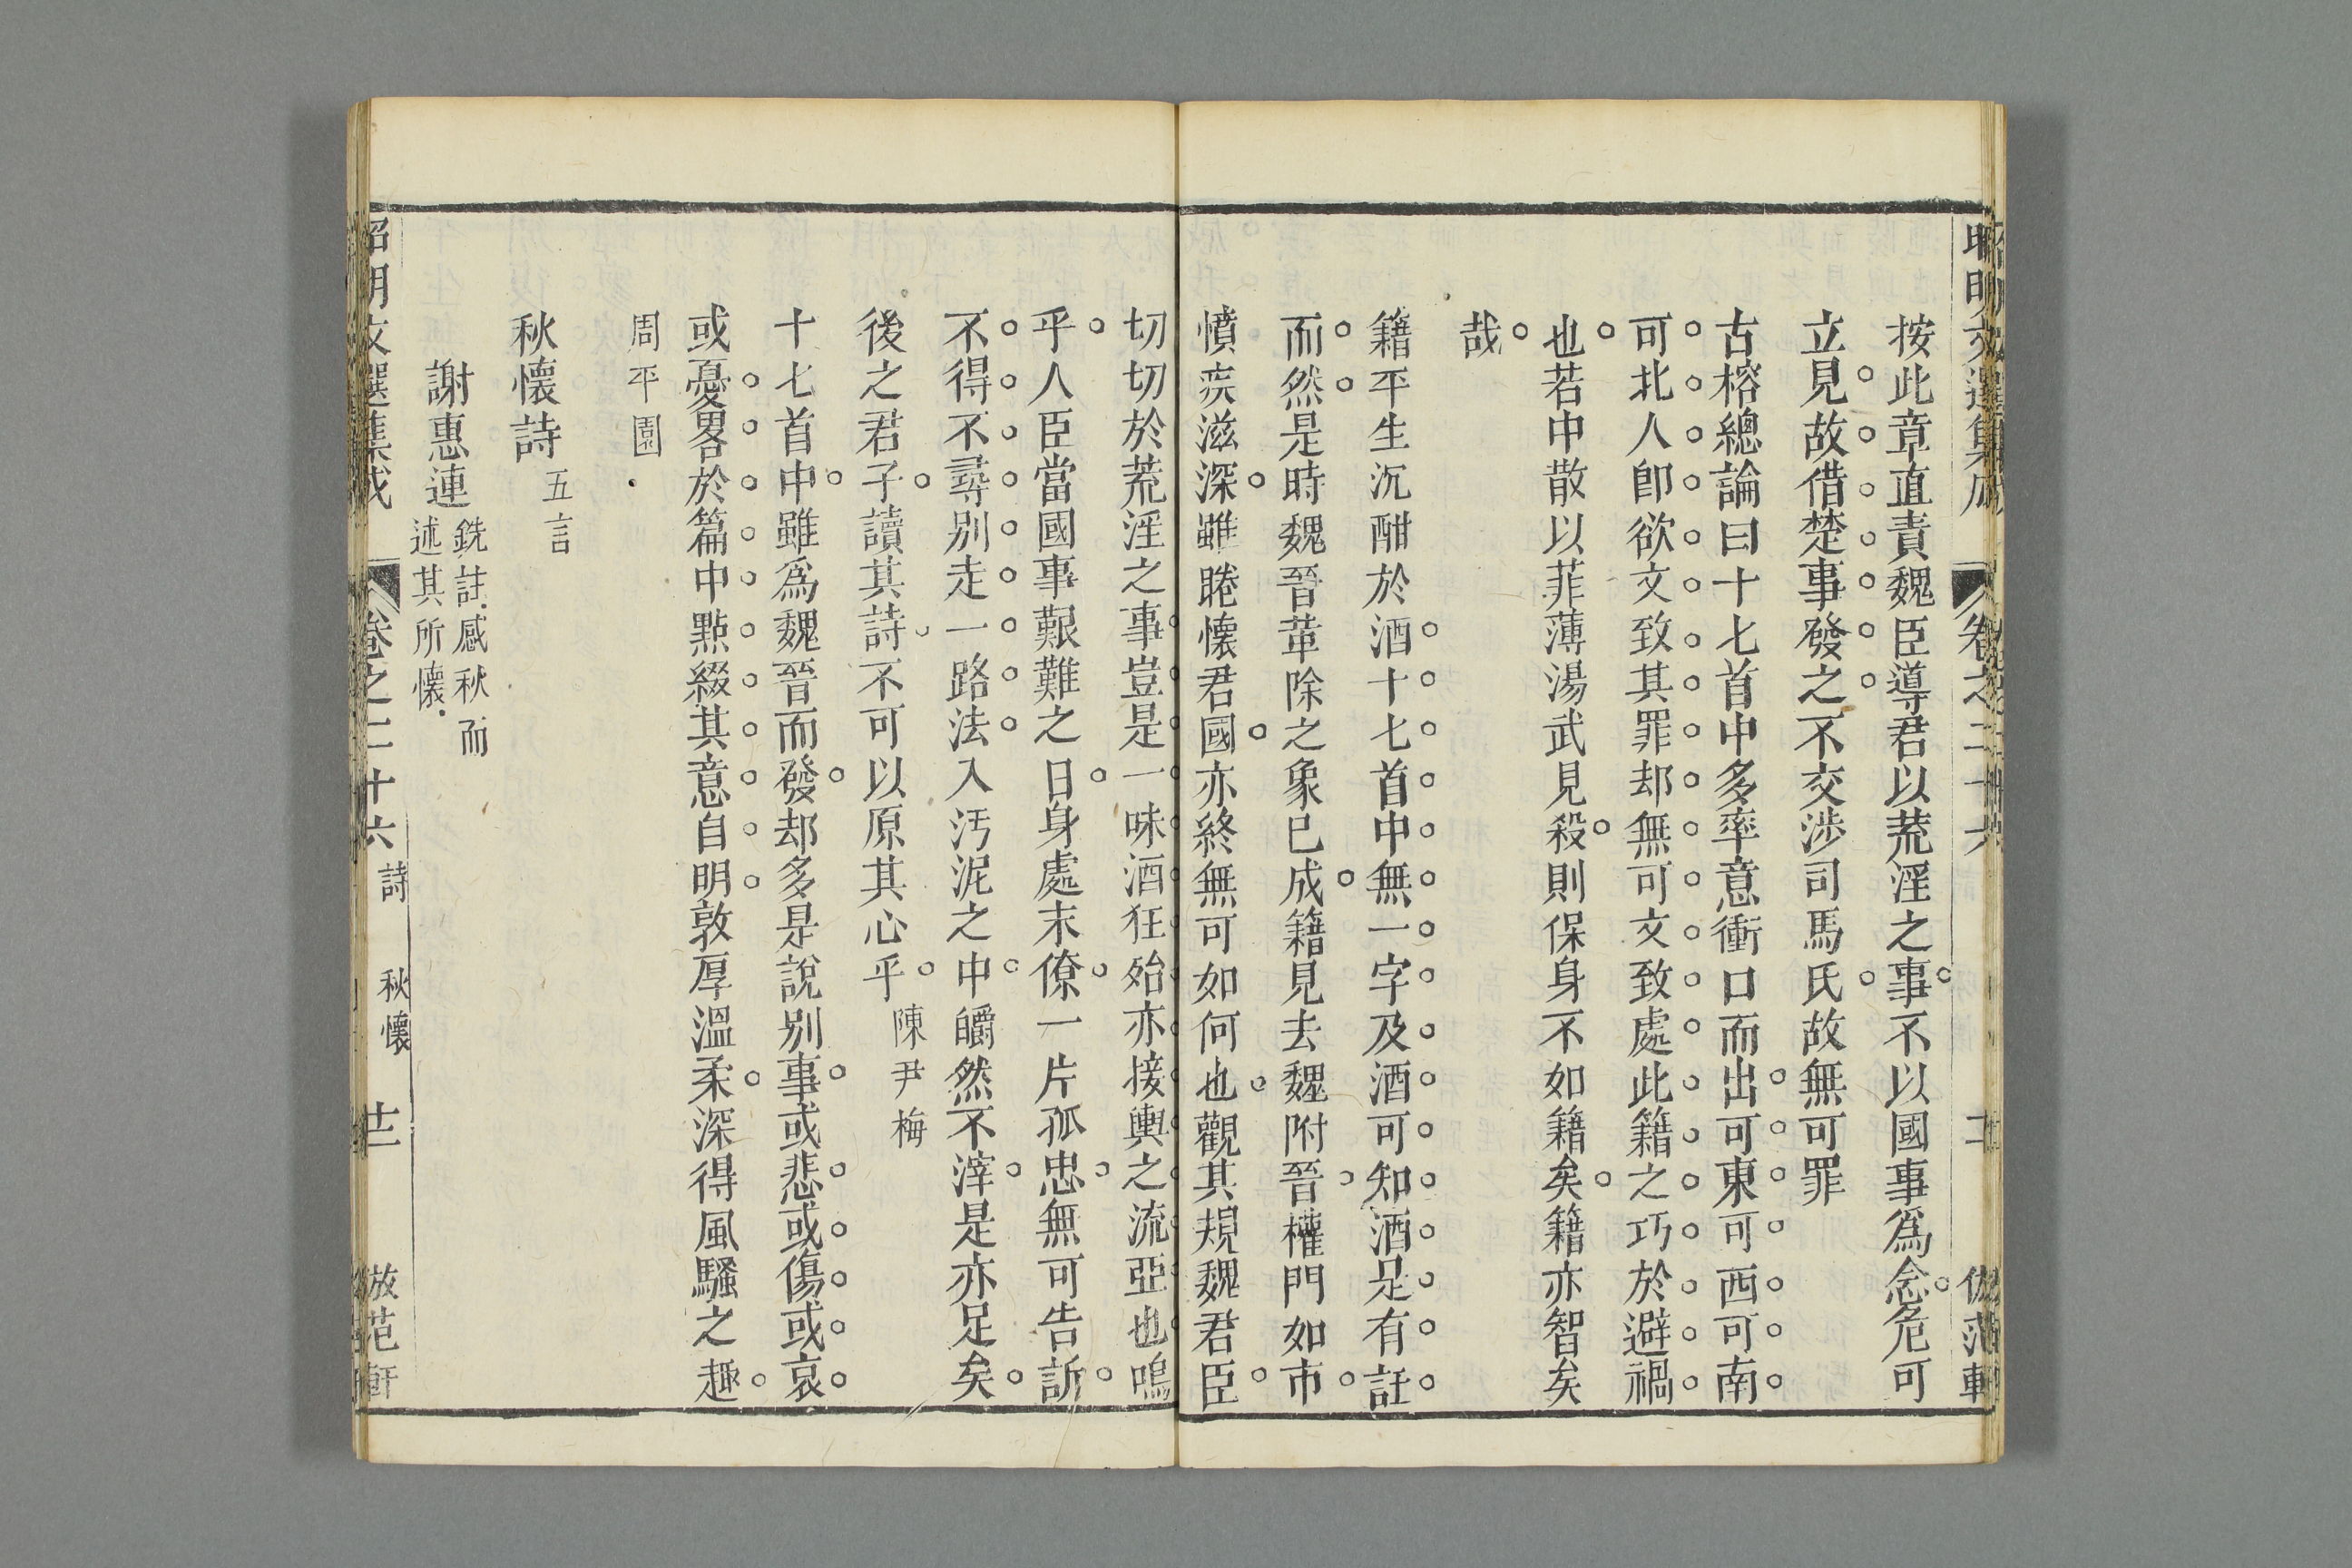 昭明文選集成 卷之二十六
按此章直責魏臣導君以荒淫之事不以國事爲念危可
立見故借楚事發之不交涉司馬氏故無可罪
古榕總論曰十七首中多率意衝口而出可東可西可南
可北人卽欲文致其罪却無可文致處此籍之巧於避禍
也若中散以菲薄湯武見殺則保身不如籍矣籍亦智矣
哉
籍平生沉酣於酒十七首中無一字及酒可知酒足有託
而然是時魏晉革除之象已成籍見去魏附晉權門如市
憤疾滋深雖睠懷君國亦終無可如何也觀其規魏君臣
切切於荒淫之事豈是一味酒狂殆亦接輿之流亞也嗚
乎人臣當國事艱難之日身處末僚一片孤忠無可告訴
不得不尋別走一路法入汚泥之中皭然不滓是亦足矣
後之君子讀其詩不可以原其心乎 陳尹梅
十七首中雖爲魏晉而發却多是說別事或悲或傷或哀
或憂畧於篇中點綴其意自明敦厚溫柔深得風騷之趣
周平園
秋懷詩 五言
謝惠連 銑註感秋而
述其所懷
昭明文選集成 卷之二十六 詩 秋懷 廿二 倣范軒